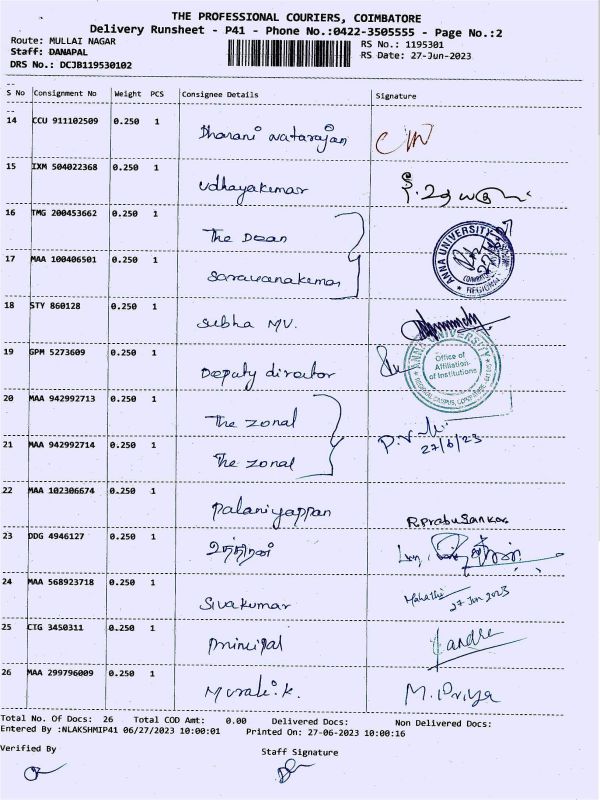 THE PROFESSIONAL COURIERS, COIMBATORE
Delivery Runsheet - P41 - Phone No.:0422-3505555 - Page No.:2
Route: MULLAI NAGAR RS No.: 1195301
Staff: DANAPAL RS Date: 27-Jun-2023
DRS No.: DCJB119530102
S No Consignment No Weight PCS Consignee Details Signature
14 CCU 911102509 0.250 1 Dharani Natarajan
15 IXM 504022368 0.250 1 Udhayakumar
16 TMG 200453662 0.250 1 The Dean
ANNA UNIVERSITY
REGIONAL
17 MAA 100406501 0.250 1 Saravanakumar
18 STY 860128 0.250 1 Subha MV.
19 GPM 5273609 0.250 1 Deputy director
ANNA UNIVERSITY
Office of
Affiliation
of Institutions
REGIONAL CAMPUS, COIMBATORE
20 MAA 942992713 0.250 1 The zonal
27/6/23
21 MAA 942992714 0.250 1 The zonal
22 MAA 102306674 0.250 1 Palaniyappan R.PrabuSankar
23 DDG 4946127 0.250 1
24 MAA 568923718 0.250 1 Sivakumar Mahathi
27 Jun 2023
25 CTG 3450311 0.250 1 Principal
26 MAA 299796009 0.250 1 Murali.K. M.Priya
Total No. Of Docs: 26 Total COD Amt: 0.00 Delivered Docs: Non Delivered Docs:
Entered By :NLAKSHMIP41 06/27/2023 10:00:01 Printed On: 27-06-2023 10:00:16
Verified By Staff Signature